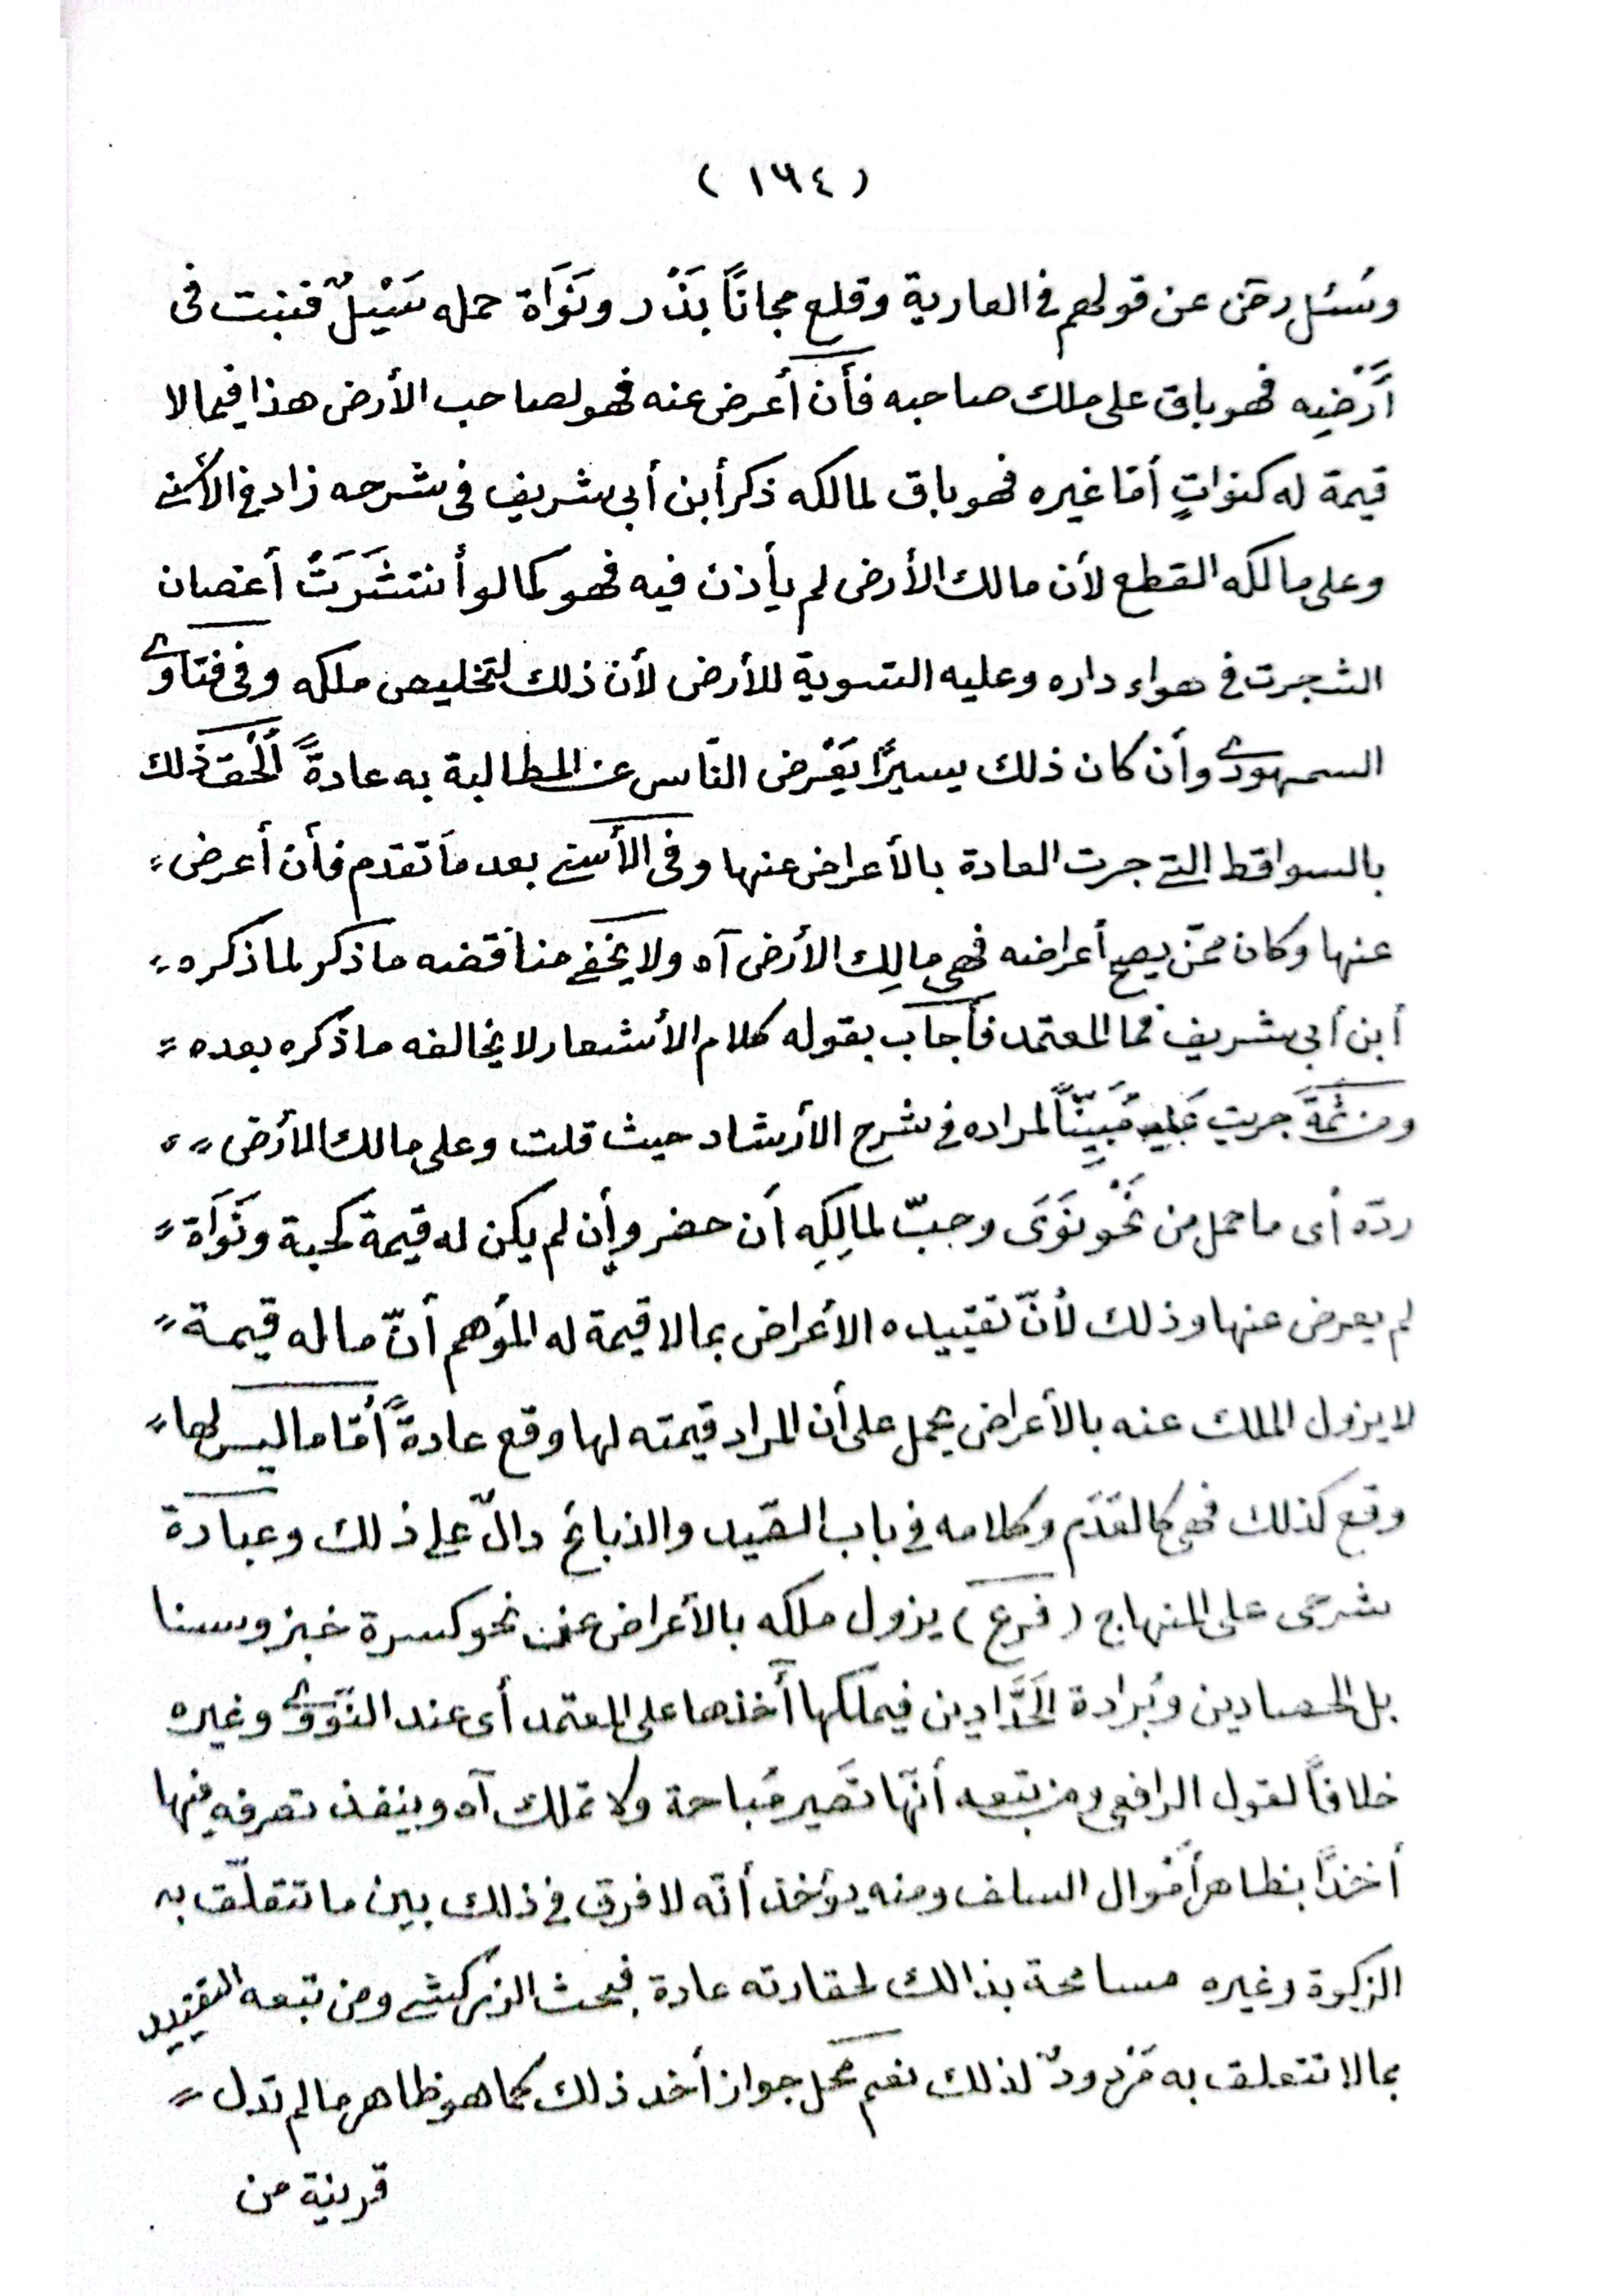 ( ١٦٤ )
وسُئل رضى عن قولهم فى العارية وقلع مجاناً بَذْر ونَوَاة حمله سَيْلٌ فنبت فى
أَرْضِه فهو باق على ملك صاحبه فأن أعرض عنه فهو لصاحب الأرض هذا فيما لا
قيمة له كنواتٍ أمّا غيره فهو باق لمالكه ذكر أبن أبى شريف فى شرحه زاد فى الأسنى
وعلى مالكه القطع لأن مالك الأرض لم يأذن فيه فهو كما لو أنتشَرَتْ أغصان
الشجرت فى هواء داره وعليه التسوية للأرض لأن ذلك لتخليص ملكه وفى فتاوى
السمهودى وأن كان ذلك يسيرًا يَعْرض النّاس عن المطالبة به عادةً أُلْحق ذلك
بالسواقط التى جرت العادة بالأعراض عنها وفى الأسنى بعد مَا تقدم فأن أعرض =
عنها وكان ممّن يصح أعراضه فهى مالِك الأرض آه ولا يخفى مناقضه ما ذكر لما ذكره =
أبن أبى شريف فما المعتمد فأجاب بقوله كلام الأشعار لا يخالفه ما ذكره بعده =
ومن ثَمَّةَ جريت عَليه مُبَيِّنًا لمراده فى شرح الأرشاد حيث قلت وعلى مالك الأرض = ،
ردّه أى ما حمل من نَحْو نَوَى وجبّ لمالِكِه أن حضر وإن لم يكن له قيمة كحبة ونَوَاة =
لم يعرض عنها وذلك لأنّ تقييده الأعراض بما لا قيمة له المؤهم أنّ ما له قيمة =
لا يزول الملك عنه بالأعراض يحمل على أن المراد قيمته لها وقع عادةً أمّا ما ليس لها =
وقع كذلك فهى كالقدم وكلامه فى باب الصّيد والذبائح دالّ على ذلك وعبارة
شرحى على المنهاج ( فرع ) يزول ملكه بالأعراض عن نحو كسرة خبز وسنا
بل الحصادين وبُرادة الحَدَّادين فيملكها أخذها على المعتمد أى عند النّوَوىّ وغيره
خلافاً لقول الرافعى ومن تبعه أنّها تصَير مُباحة ولا تملك آه وينفذ تصرفه فيها
أخذًا بظاهر أحْوال السلف ومنه يؤخذ أنّه لا فرق فى ذلك بين ما تتعلّق به
الزكوة وغيره مسامحة بذالك لحقارته عادة فبحث الزركشى ومن تبعه التقييد
بما لا تتعلق به مَرْدودٌ لذلك نعم محَل جواز أخد ذلك كما هو ظاهر ما لم تدل =
قرينة من